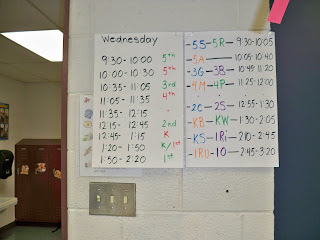 Wednesday
9:30 - 10:00 5th
10:00 - 10:30 5th
10:35 - 11:05 3rd
11:05 - 11:35 4th
11:35 - 12:15 -
12:15 - 12:45 2nd
12:45 - 1:15 K
1:20 - 1:50 K/1st
1:50 - 2:20 1st
-5S-5R- 9:30-10:05
-5A 10:05-10:40
-3G-3B- 10:45-11:20
-4M-4P- 11:25-12:00
-2C-2S- 12:55-1:30
-KB-KW- 1:30-2:05
-KS-1Ri- 2:10-2:45
-1RU-1O- 2:45-3:20